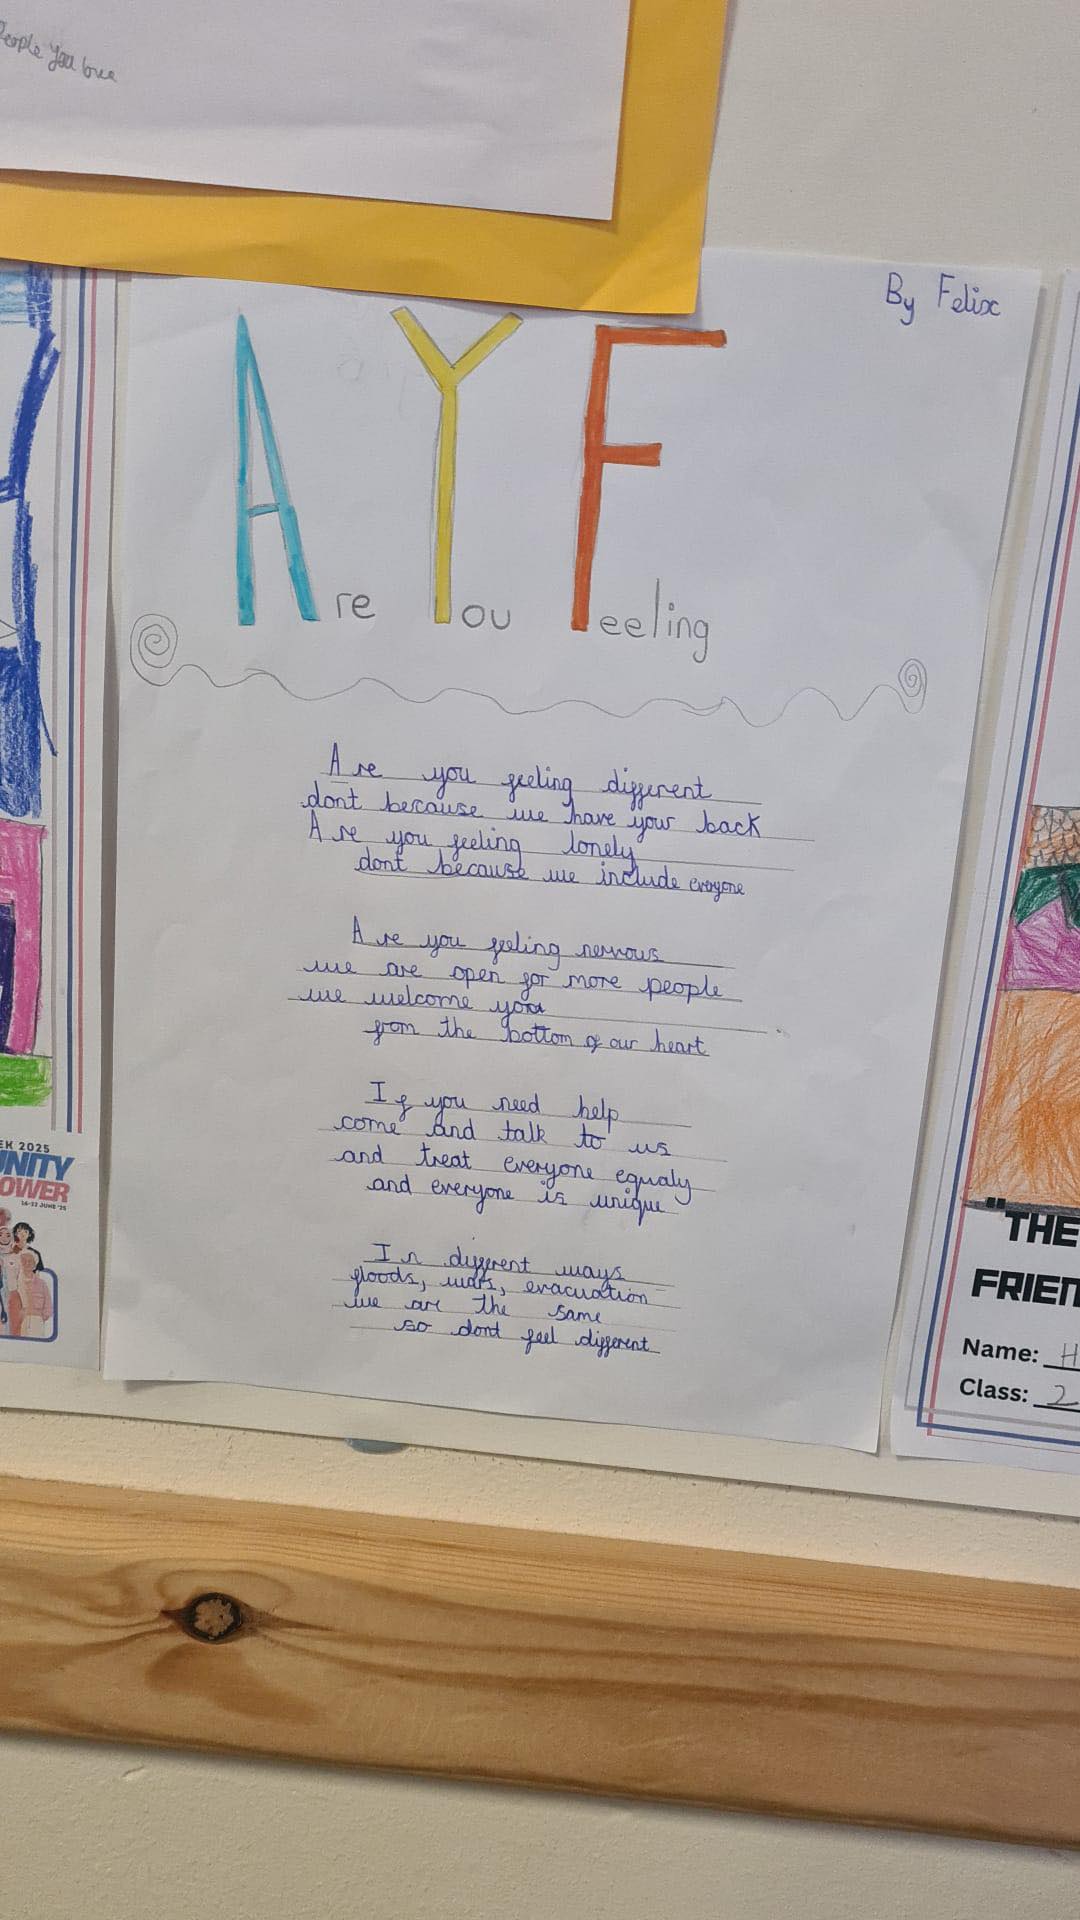 People You love
By Felix
AYF
Are You Feeling
Are you feeling different
dont because we have your back
Are you feeling lonely
dont because we include everyone
Are you feeling nervous
we are open for more people
we welcome you
from the bottom of our heart
If you need help
come and talk to us
and treat everyone equaly
and everyone is unique
In different ways
floods, wars, evacuation
we are the same
so dont feel different
EK 2025
UNITY
OWER
16-22 JUNE '25
"THE
FRIEN
Name: H
Class: 2